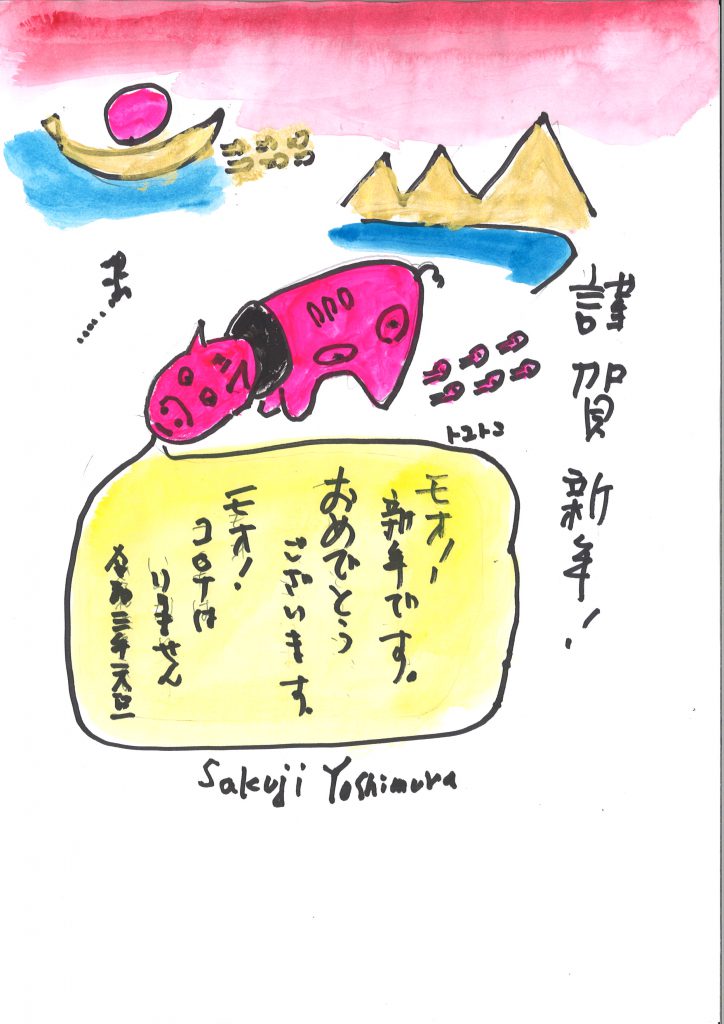 謹賀新年!
トコトコ
モオ!
新年です。
おめでとう
ございます。
モオ!
コロナは
いりません
令和三年元旦
Sakuji Yoshimura